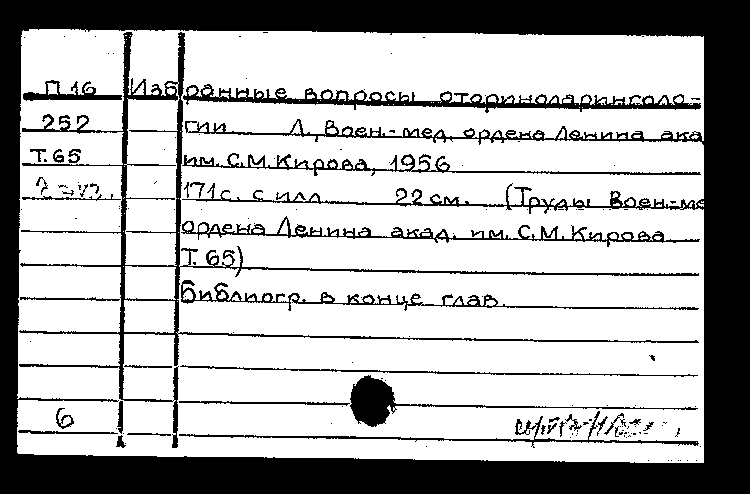 П 16 Избранные вопросы оториноларинголо-
252 гии Л., Воен.-мед. ордена Ленина ака
Т. 65 им. С.М. Кирова, 1956
171 с. с илл. 22 см. (Труды Воен.-ме
ордена Ленина акад. им. С.М. Кирова
Т. 65)
Библиогр. в конце глав.
6